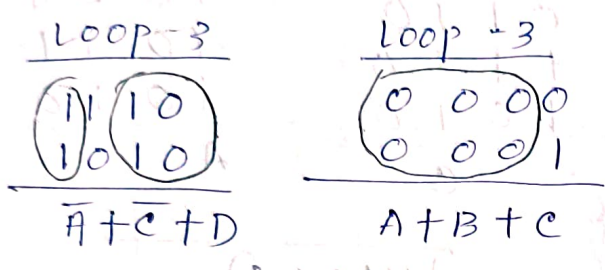 LOOP-3
1110
1010
A̅+C̅+D
LOOP-3
0000
0001
A+B+C